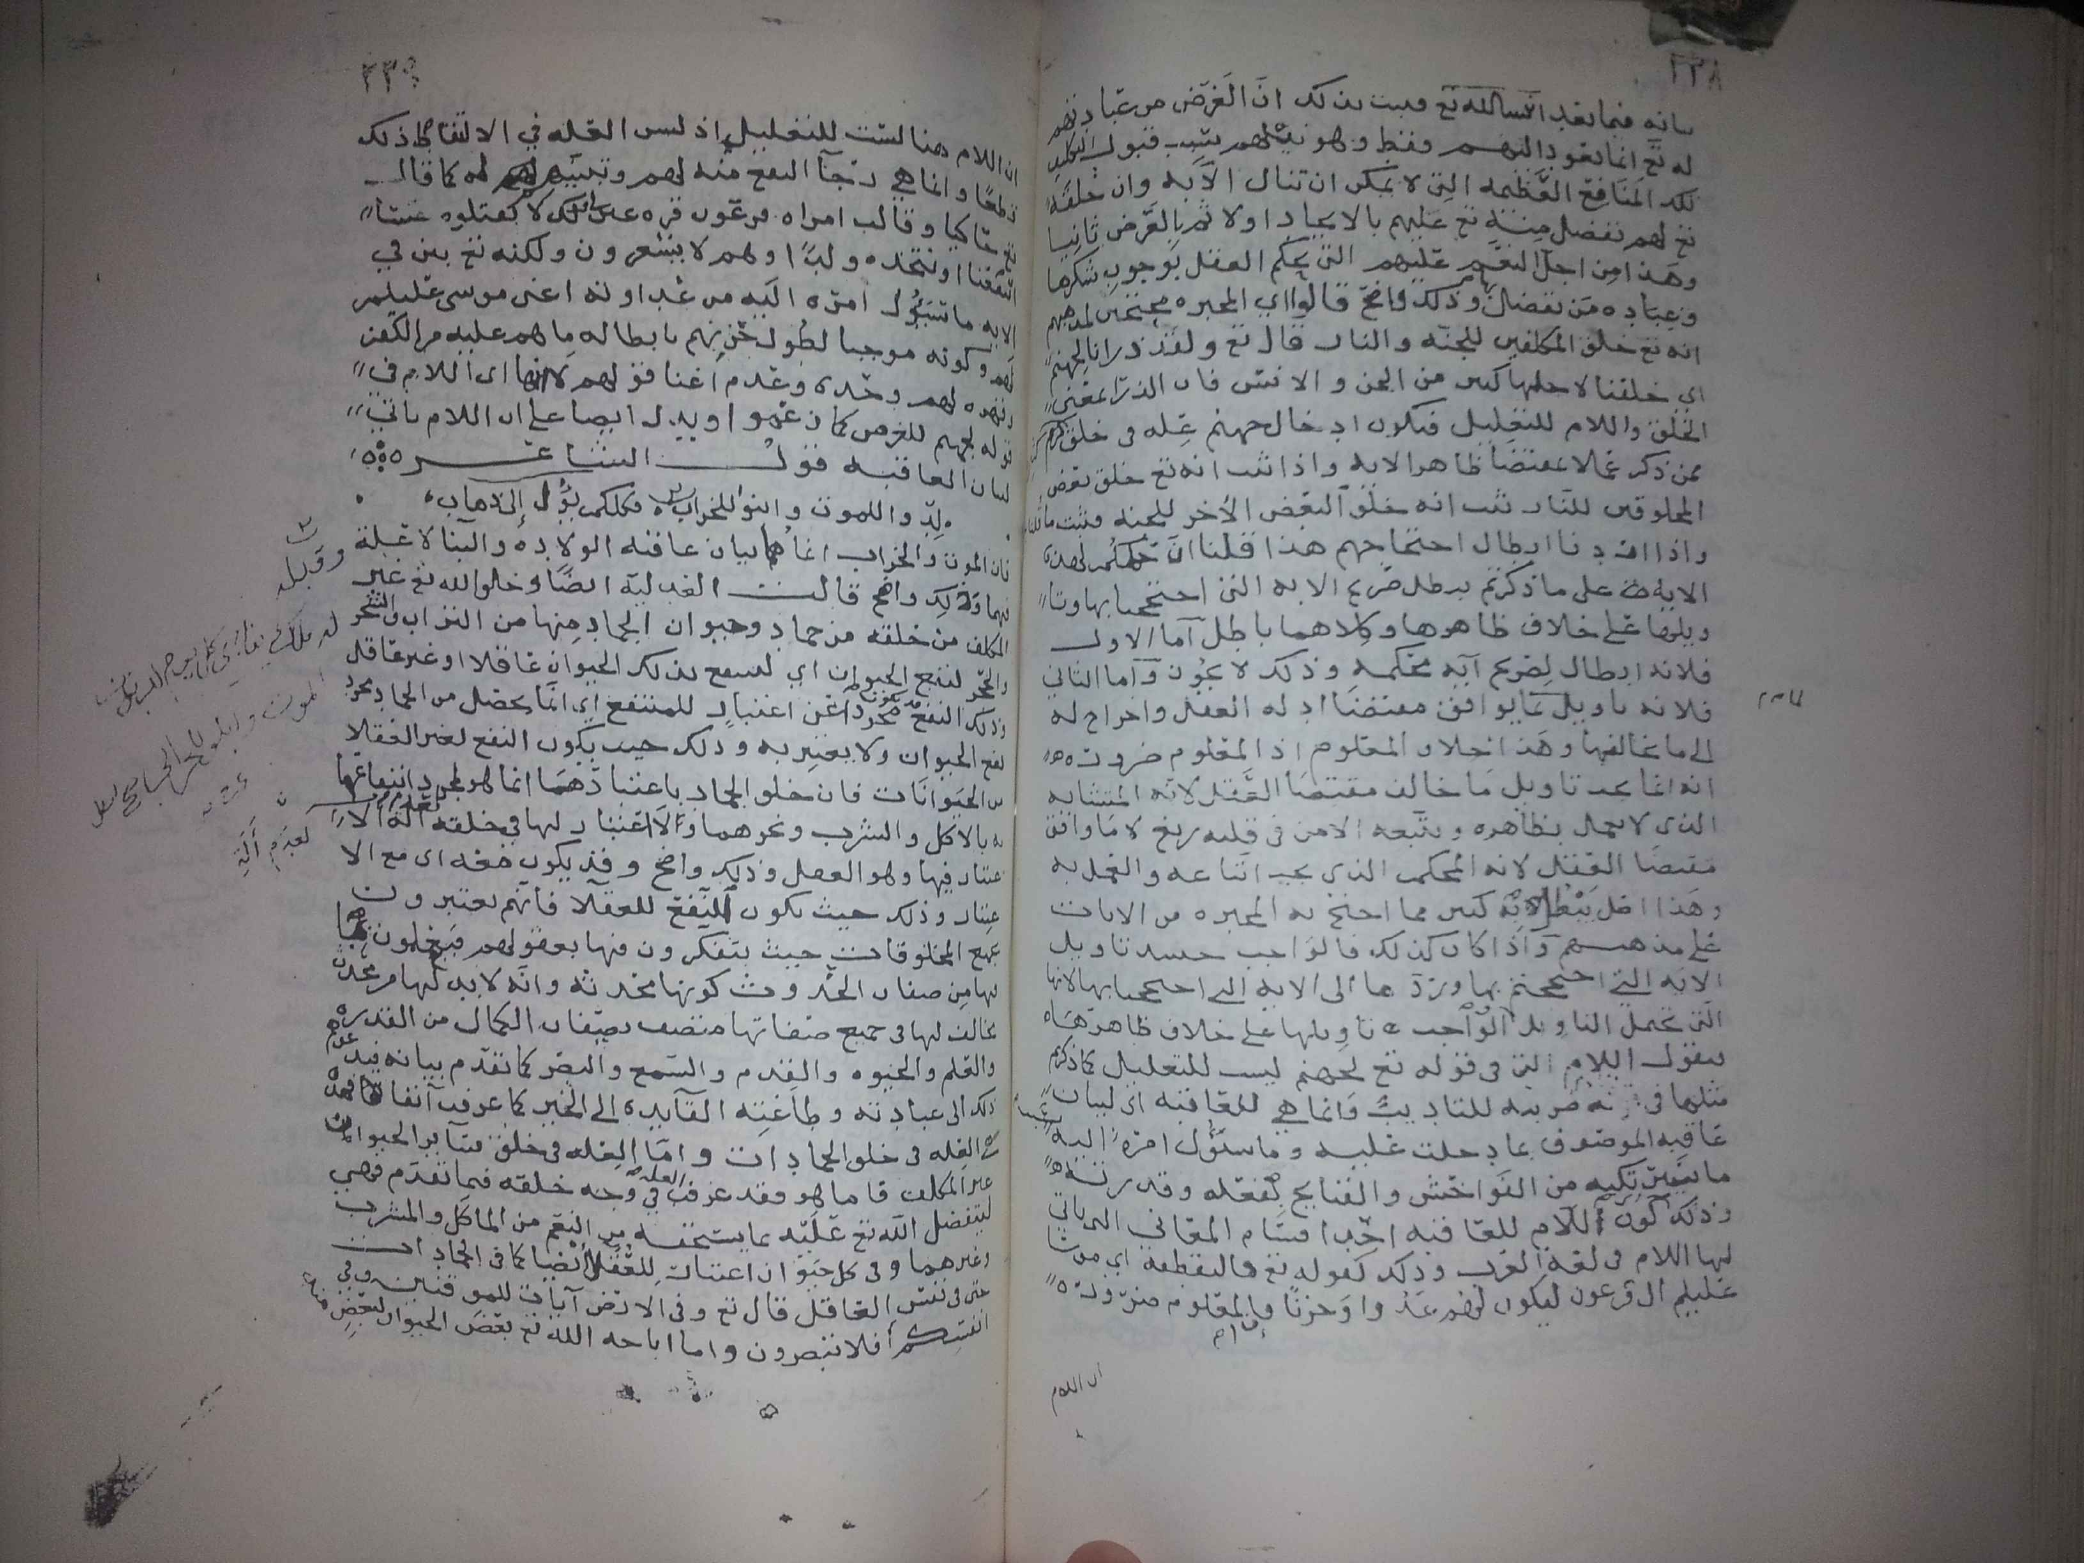 ٢٣٨
بيانه فيما بعد ان شا الله تع فثبت بذلك ان الغرض من عبادتهم
له تع انما يعود اليهم وفقط وهو نيلهم بسبب قبول التكليف
تلك المنافع العظيمه التي لا يمكن ان تنال الا به وان خلقه
تع لهم تفضل منه تع عليهم بالايجاد اولا ثم بالعرض ثانيا
وهذا من اجل النعم عليهم التي يحكم العقل بوجوب شكرها
وعباده من تفضل بها وذلك واضح قالوا اي المجبره محتجين لمذهبهم
انه تع خلق المكلفين للجنه والنار قال تع ولقد ذرانا لجهنم
اى خلقنا لاجلها كثير من الجن والانس فان الذرا بمعنى
الخلق واللام للتعليل فيكون ادخال جهنم عله في خلق
ممن ذكر عملا بمقتضا ظاهر الايه واذا ثبت انه تع خلق بعض
المخلوقين للنار ثبت انه خلق البعض الاخر للجنه فثبت ما قلنا
واذا اردنا ابطال احتجاجهم هذا قلنا ان حملكم لهذه
الايه على ما ذكرتم يبطل صريح الايه التي احتججنا بها وتا
ويلها على خلاف ظاهرها وكلاهما باطل اما الاول
فلانه ابطال لصريح آيه محكمه وذلك لا يجوز واما الثاني
فلانه تاويل لما يوافق مقتضا ادله العقل واخراج له
الى ما يخالفها وهذا خلاف المعلوم اذ المعلوم ضروره
انه انما يجب تاويل ما خالف مقتضا العقل لانه المتشابه
الذى لا يعمل بظاهره ويتبعه الا من في قلبه زيغ لا ما وافق
مقتضا العقل لانه المحكم الذى يجب اتباعه والعمل به
وهذا اصل يبطل به كثير مما احتج به المجبره من الايات
على مذهبهم واذا كان كذلك فالواجب حينئذ تاويل
الايه التي احتججتم بها وردها الى الايه التي احتججنا بها لانها
التي تحتمل التاويل الواجب تاويلها على خلاف ظاهرها
فنقول اللام التي في قوله تع لجهنم ليست للتعليل كما ذكرتم
مثلها في ضربته للتاديب وانما هي للعاقبه اى لبيان
عاقبه الموصوف بما دخلت عليه وما سيؤول امره اليه
ما يرتكبه من الفواحش والقبايح بفعله وقدرته
وذلك كون اللام للعاقبه احد اقسام المعاني التي تاتي
لها اللام في لغه العرب وذلك كقوله تع فالتقطه اي موسا
عليلم ال فرعون ليكون لهم عدوا وحزنا والمعلوم ضروره
ان اللام
٢٣٩
ان اللام هنا ليست للتعليل اذ ليس العله في الالتقاط ذلك
قطعا وانما هي رجآ النفع منه لهم وتبنيهم له كما قال
تع حاكيا وقالت امراه فرعون قره عين لي ولك لا تقتلوه عسا
ان ينفعنا او نتخذه ولدا وهم لا يشعرون ولكنه تع بين في
الايه ما سيؤول امره اليه من عداوته اعنى موسى عليلم
لهم وكونه موجبا لطول حزنهم بابطاله ما هم عليه من الكفر
وقهره لهم وحده وعدم اغنا قولهم لانها اى اللام في
قوله لجهنم للغرض كما زعموا ويدل ايضا على ان اللام تاتي
لبيان العاقبه قول الشاعر
لدوا للموت وابنوا للخراب فكلكم يؤل الى ذهاب
فان الموت والخراب انما هما بيان عاقبه الولاده والبنا لا عله
فيهما وذلك واضح قالت العدليه ايضا وخلق الله تع غير
المكلف من خلقه من جماد وحيوان الجماد منها من التراب والشجر
والحجر لنفع الحيوان اي لينتفع بذلك الحيوان عاقلا او غير عاقل
وذلك النفع يكون مجردا عن اعتبار للمنتفع اي انما يحصل من الجماد مجرد
نفع الحيوان ولا يعتبر به وذلك حيث يكون النفع لغير العقلا
من الحيوانات فان خلق الجماد باعتبارهما انما هو لمجرد انتفاعها
به بالاكل والشرب ونحوهما ولا اعتبار لها في خلقه لعدم آلة الا
عتبار فيها وهو العقل وذلك واضح وقد يكون معه اى مع الا
عتبار وذلك حيث يكون النفع للعقلا فانهم يعتبرون
بجميع المخلوقات حيث يتفكرون فيها بعقولهم فيعلمون
بها من صفات الحدوث كونها محدثه وانه لا بد لها من محدث
مخالف لها في جميع صفاتها متصف بصفات الكمال من القدره
والعلم والحيوه والقدم والسمع والبصر كما تقدم بيانه فيدعوهم
ذلك الى عبادته وطاعته القآيده الى الخير كما عرفت آنفا فهذه
هى العله في خلق الجمادات واما العله في خلق سآير الحيوانات
غير المكلف فاما هو فقد عرفت العله في وجه خلقه فيما تقدم فهي
ليتفضل الله تع عليه بما يستحقه من النعم من الماكل والمشرب
وغيرهما وفي كل حيوان اعتبار للعقلا ايضا كما في الجمادات
حتى في نفس العاقل قال تع وفي الارض آيات للموقنين وفي
انفسكم افلا تبصرون واما اباحه الله تع بعض الحيوان لبعض
وقبله
له ملك ينادي كل يوم
لعدم آلة